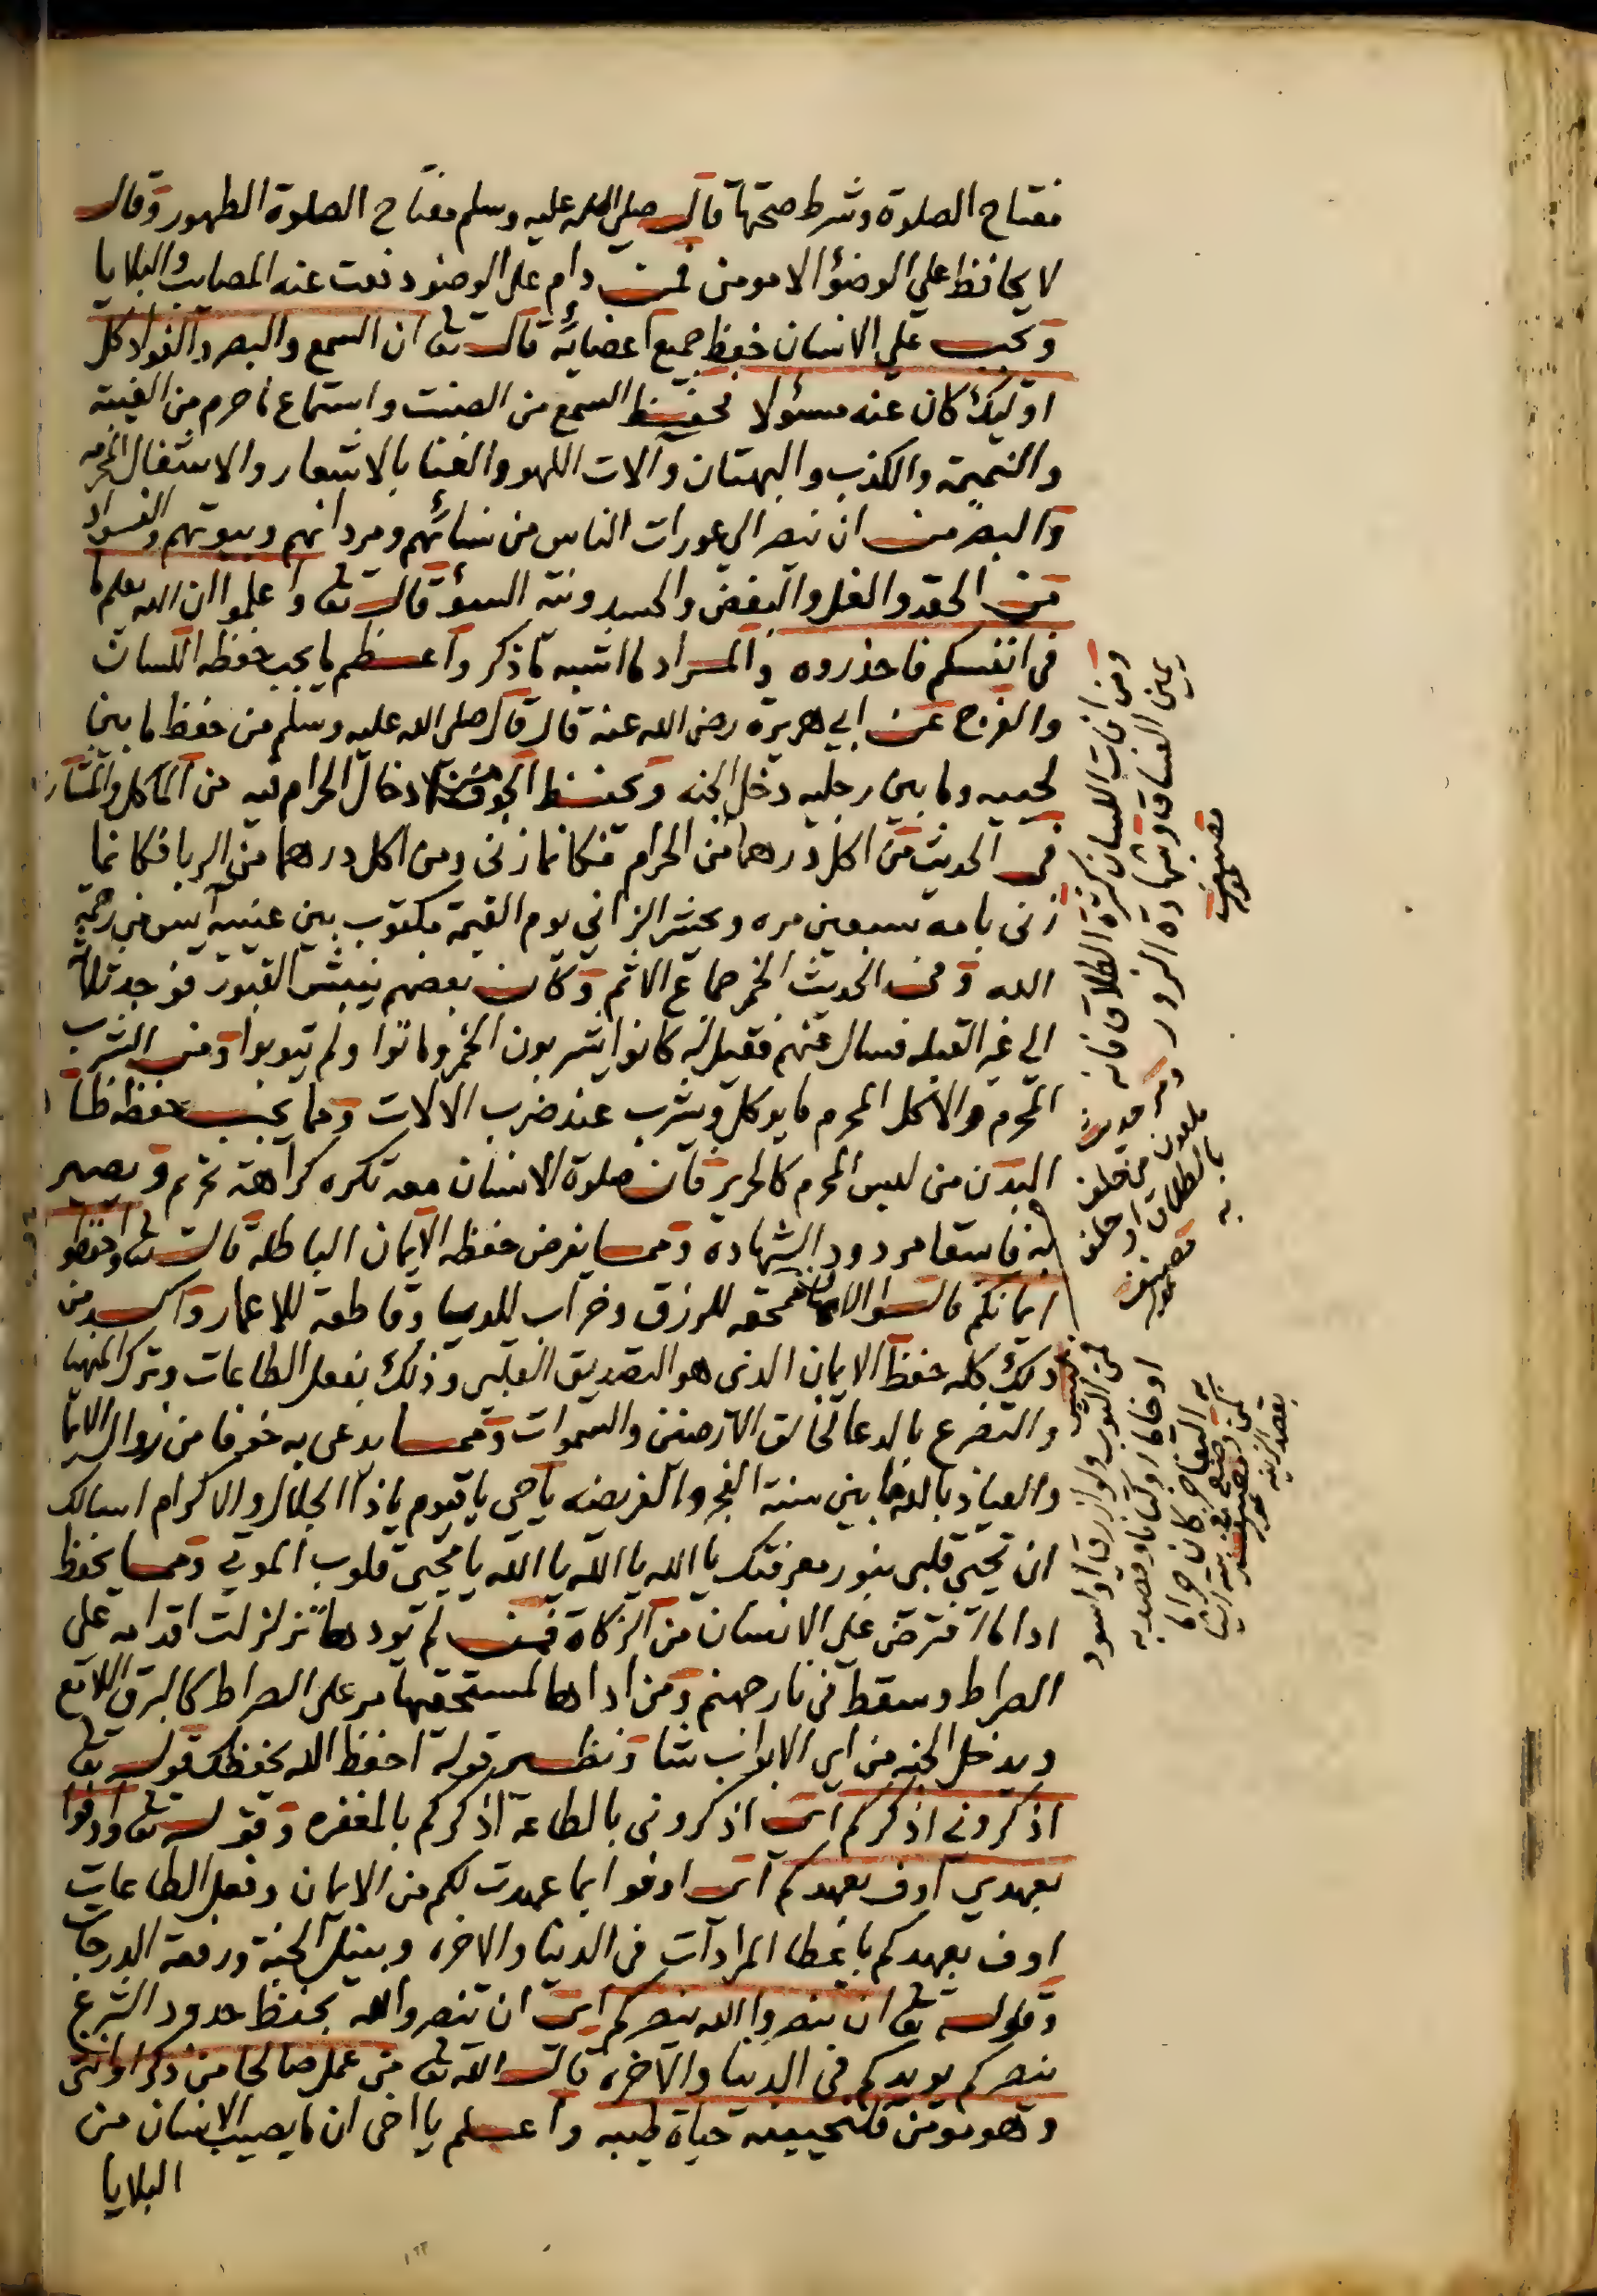 مفتاح الصلوة وشرط صحتها قال صلى الله عليه وسلم مفتاح الصلوة الطهور وقال
لا يحافظ علي الوضؤ الا مومن فمن دام على الوضؤ دفعت عنه المصايب والبلايا
ويجب علي الانسان حفظ جميع اعضائه قال تعا ان السمع والبصر والفواد كل
اوليك كان عنه مسؤلا فحفظ السمع من الصنت واستماع ما حرم من الغيبة
والنميمة والكذب والبهتان وآلات اللهو والغنا بالاشعار والاشغال المحرمه
والبصر من ان ينصر الي عورات الناس من نسائهم ومردانهم وبيوتهم والفواد
من الحقد والغل والبغض والحسد ونية السؤ قال تعا واعلموا ان الله يعلم ما
في انفسكم فاحذروه والمراد ما اشبه ما ذكر واعظم ما يجب حفظه اللسان
والفرج عن ابي هريرة رضى الله عنه قال قال صلى الله عليه وسلم من حفظ ما بين
لحييه وما بين رجليه دخل الجنه ويحفظ الجوف من ادخال الحرام فيه من الماكل والمشارب
في الحديث من اكل درهما من الحرام فكانما زنى ومن اكل درهما من الربا فكانما
زنى بامه سبعين مره ويحشر الزاني يوم القيمة مكتوب بين عينيه آيس من رحمة
الله وفي الحديث الخمر جماع الاثم وكان بعضهم ينبش القبور فوجد ثلاثة
الي غير القبله فسال عنهم فقيل له كانوا يشربون الخمر وماتوا ولم يتوبوا ومن الشرب
المحرم والاكل المحرم ما يوكل ويشرب عند ضرب الالات ومما يجب حفظه ظاهر
البدن من لبس المحرم كالحرير فان صلوة الانسان معه تكره كراهة تحريم ويصير
به فاسقا مردود الشهادة ومما يفرض حفظه الايمان الباطلة قال تعا واحفظوا
ايمانكم قالوا الايمان ممحقه للرزق وخراب للدنيا وقاطعة للاعمار واكد من
ذلك كله حفظ الايمان الذى هو التصديق القلبى وذلك بفعل الطاعات وترك المنهيات
والتضرع بالدعا لخالق الارضين والسموات ومما يدعى به خوفا من زوال الايمان
والعياذ بالله ما بين سنة الفجر والفريضه يا حي يا قيوم يا ذا الجلال والاكرام اسالك
ان تحيي قلبى بنور معرفتك يا الله يا الله يا الله يا محيي قلوب الموتي ومما يحفظ
ادا ما افترض على الانسان من الزكاة فمن لم يودها تزلزلت اقدامه على
الصراط وسقط في نار جهنم ومن اداها لمستحقها مر على الصراط كالبرق اللامع
ويدخل الجنه من اي الابواب شا ونظير قوله احفظ الله يحفظك قوله تعا
اذكروني اذكركم اى اذكروني بالطاعة اذكركم بالمغفره وقوله تعا واوفوا
بعهدي اوف بعهدكم اى اوفوا بما عهدت لكم من الايمان وفعل الطاعات
اوف بعهدكم باعطا المرادآت في الدنيا والاخره وبنيل الجنة ورفعة الدرجات
وقوله تعا ان تنصروا الله ينصركم اى ان تنصروا الله بحفظ حدود الشرع
ينصركم يويدكم في الدنيا والآخره قال الله تعا من عمل صالحا من ذكر او انثى
وهو مومن فلنحيينه حياة طيبه واعلم يا اخى ان ما يصيب الانسان من
البلايا
ومن افات اللسان كثرة الطلاق فانه
يمين الفساق وشهادة الزور
وفي حديث
ملعون من حلف
بالطلاق او حلف
به
من الثوب ولو ازرق او اسود